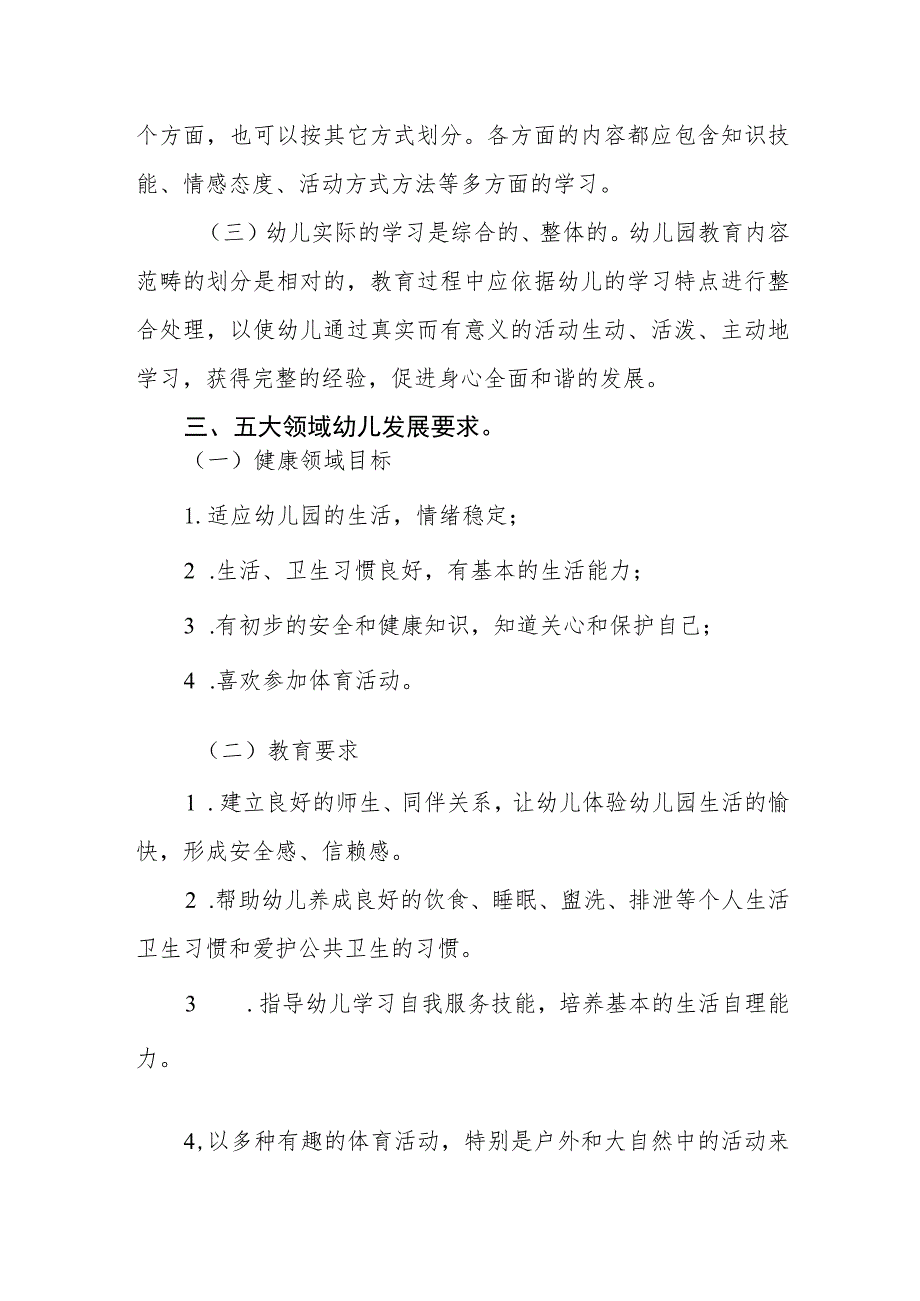 个方面，也可以按其它方式划分。各方面的内容都应包含知识技
能、情感态度、活动方式方法等多方面的学习。
（三）幼儿实际的学习是综合的、整体的。幼儿园教育内容
范畴的划分是相对的，教育过程中应依据幼儿的学习特点进行整
合处理，以使幼儿通过真实而有意义的活动生动、活泼、主动地
学习，获得完整的经验，促进身心全面和谐的发展。
三、五大领域幼儿发展要求。
（一）健康领域目标
1. 适应幼儿园的生活，情绪稳定；
2 .生活、卫生习惯良好，有基本的生活能力；
3 .有初步的安全和健康知识，知道关心和保护自己；
4 .喜欢参加体育活动。
（二）教育要求
1 .建立良好的师生、同伴关系，让幼儿体验幼儿园生活的愉
快，形成安全感、信赖感。
2 .帮助幼儿养成良好的饮食、睡眠、盥洗、排泄等个人生活
卫生习惯和爱护公共卫生的习惯。
3 .指导幼儿学习自我服务技能，培养基本的生活自理能
力。
4,以多种有趣的体育活动，特别是户外和大自然中的活动来